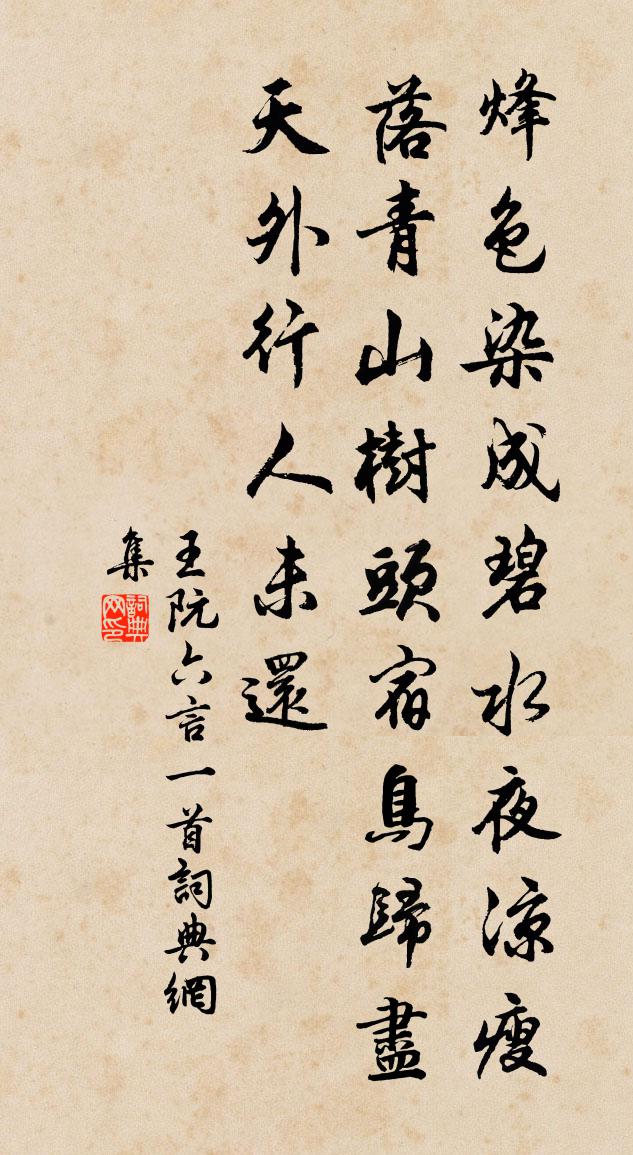 烽色染成碧水夜涼瘦
落青山樹頭宿鳥歸盡
天外行人未還
王阮六言一首詞典網
集
詞典网印